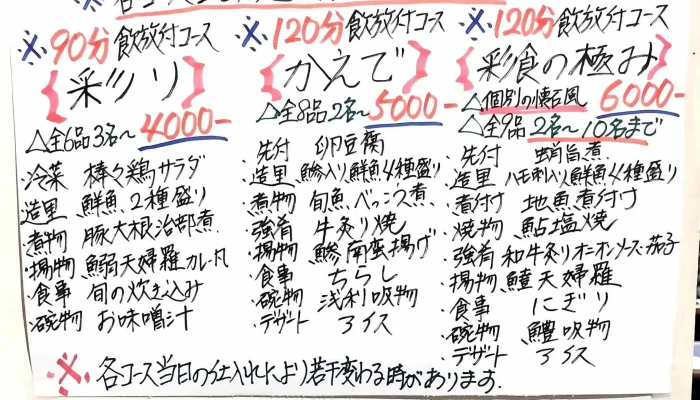 ※90分飲放付コース
彩り
△全6品3名~ 4000-
・冷菜 棒々鶏サラダ
・造里 鮮魚2種盛り
・煮物 豚大根治部煮
・揚物 鰯天婦羅カレー凡
・食事 旬の炊き込み
・碗物 お味噌汁
※120分飲放付コース
かえで
△全8品2名~ 5000-
・先付 卵豆腐
・造里 鰺入り鮮魚4種盛り
・煮物 旬魚べっこう煮
・強肴 牛炙り焼
・揚物 鰺南蛮揚げ
・食事 ちらし
・碗物 浅利吸物
・デザート アイス
※120分飲放付コース
彩食の極み
△個別の懐石風 6000-
△全9品 2名~10名まで
・先付 旨煮
・造里 ハモ刺入り鮮魚4種盛り
・煮付け 地魚煮付け
・焼物 鮎塩焼
・強肴 和牛炙りオニオンソース・茄子
・揚物 天婦羅
・食事 にぎり
・碗物 吸物
・デザート アイス
※各コース当日の仕入れにより若干変わる時があります.